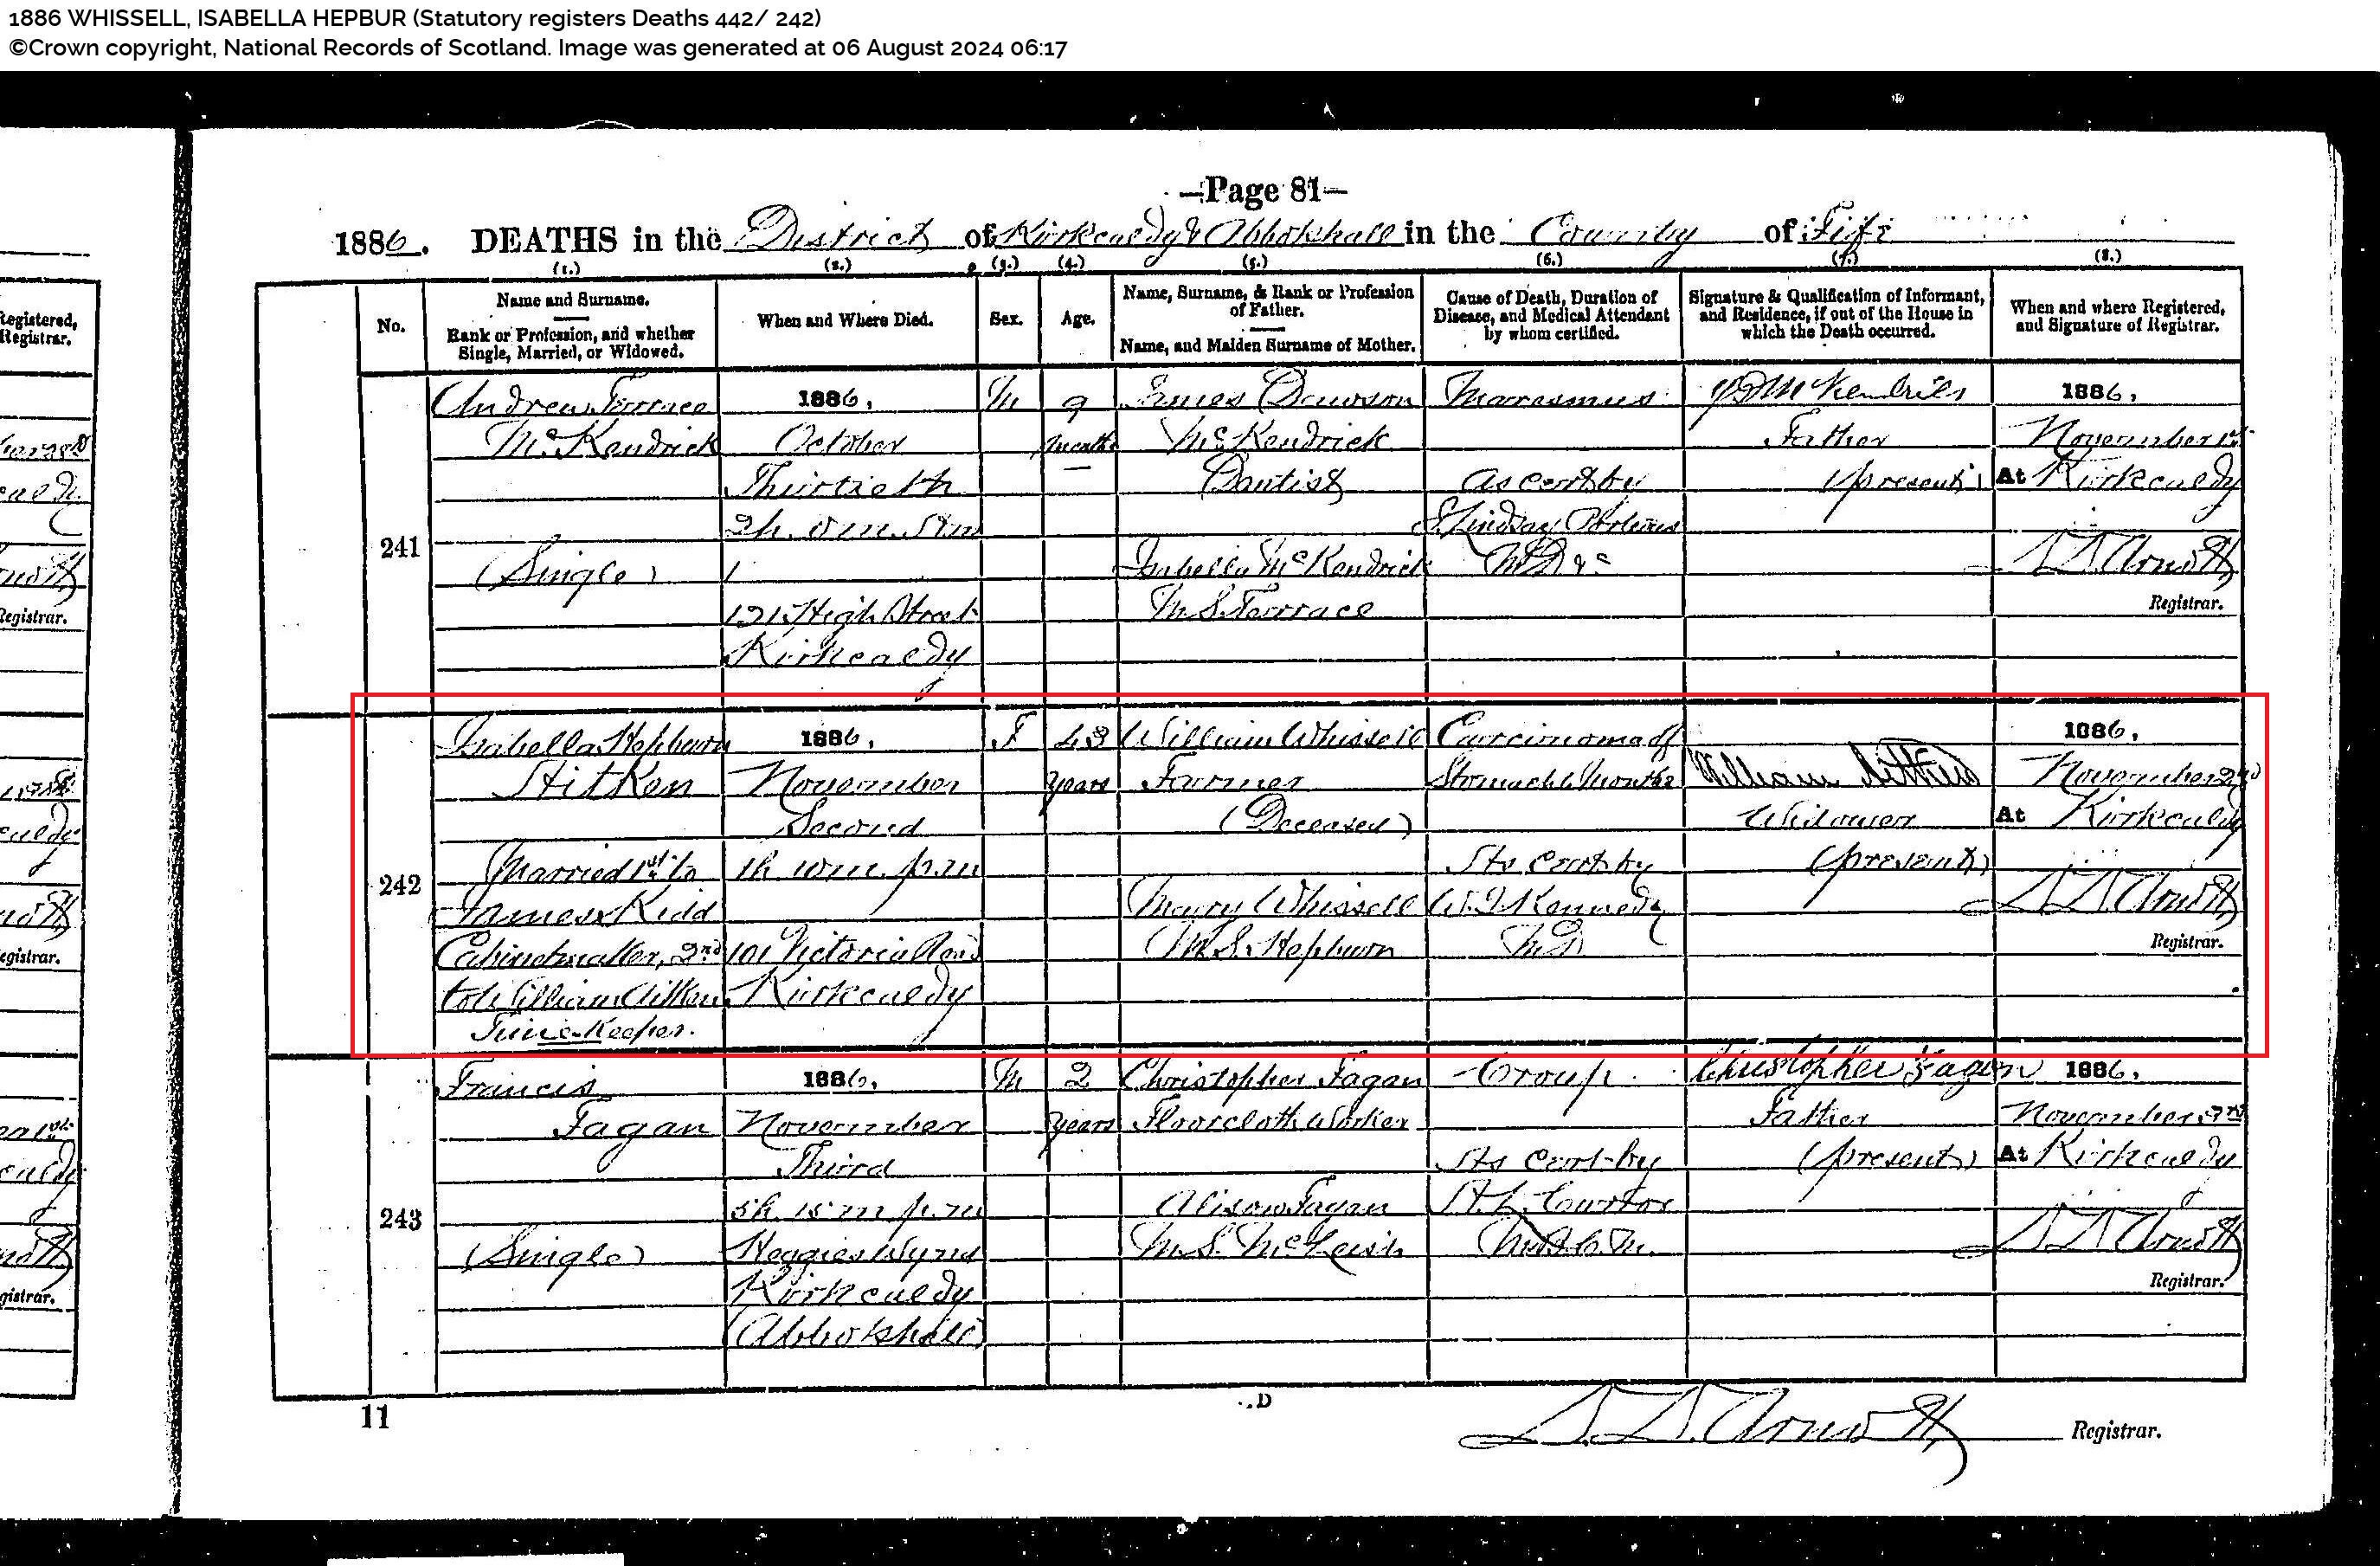 1886 WHISSELL, ISABELLA HEPBUR (Statutory registers Deaths 442/ 242)
©Crown copyright, National Records of Scotland. Image was generated at 06 August 2024 06:17
Page 81
1886. DEATHS in the District of Kirkcaldy & Abbotshall in the County of Fife
(1.) (2.) (3.) (4.) (5.) (6.) (7.) (8.)
No.
Name and Surname.
Rank or Profession, and whether
Single, Married, or Widowed.
When and Where Died.
Sex.
Age.
Name, Surname, & Rank or Profession
of Father.
Name, and Maiden Surname of Mother.
Cause of Death, Duration of
Disease, and Medical Attendant
by whom certified.
Signature & Qualification of Informant,
and Residence, if out of the House in
which the Death occurred.
When and where Registered,
and Signature of Registrar.
241
Andrew Torrace
McKendrick
(Single)
1886,
October
Thirtieth
2h. 0 m. A m
121 High Street
Kirkcaldy
M
9
months
James Dawson
McKendrick
Dentist
Isabella McKendrick
M.S. Torrace
Marasmus
As cert by
S. Lindsay
M.D. &c
McKendrick
Father
(present)
1886,
November 1st
At Kirkcaldy
Arnott
Registrar.
242
Isabella Hepburn
Aitken
Married 1st to
James Kidd
Cabinetmaker, 2nd
to William Aitken
Time-Keeper.
1886,
November
Second
1h. 10 m. p.m
101 Victoria Road
Kirkcaldy
F
43
years
William Whissell
Farmer
(Deceased)
Mary Whissell
M.S. Hepburn
Carcinoma of
Stomach 6 Months
As cert by
Kennedy
M.D
William Aitken
Widower
(present)
1886,
November 2nd
At Kirkcaldy
Arnott
Registrar.
243
Francis
Fagan
(Single)
1886,
November
Third
5h. 15 m p.m
Heggies Wynd
Kirkcaldy
(Abbotshall)
M
2
years
Christopher Fagan
Floorcloth Worker
Alison Fagan
M.S. McLeish
Croup
As cert by
M.B.C.M.
Christopher Fagan
Father
(present)
1886,
November 3rd
At Kirkcaldy
Arnott
Registrar.
11
D
Arnott Registrar.
Registered,
Registrar.
Registrar.
egistrar.
gistrar.